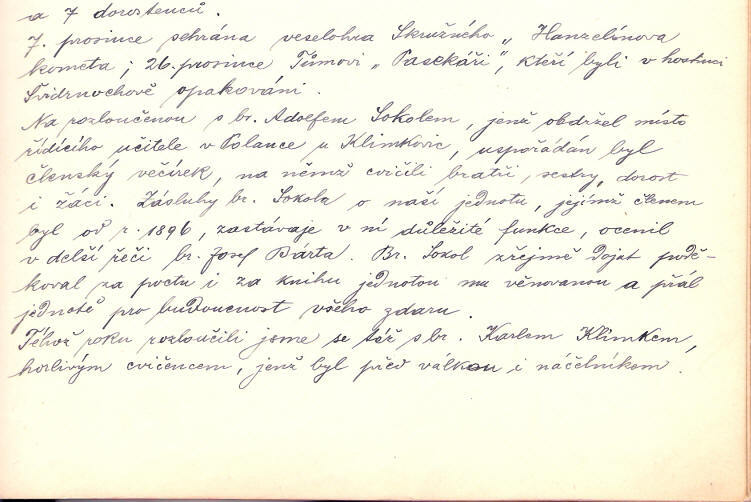 a 7 dorostenců.
7. prosince sehrána veselohra Skružného „Hanzelínova
kometa; 26. prosince Tůmovi „Pasekáři", kteří byli v hostinci
Svidrnochově opakováni.
Na rozloučenou s br. Adolfem Sokolem, jenž obdržel místo
řídícího učitele v Polance u Klimkovic, uspořádán byl
členský večírek, na němž cvičili bratři, sestry, dorost
i žáci. Zásluhy br. Sokola o naší jednotu, jejímž členem
byl od r. 1896, zastávaje v ní důležité funkce, ocenil
v delší řeči br. Josef Bárta. Br. Sokol zřejmě dojat podě-
koval za poctu i za knihu jednotou mu věnovanou a přál
jednotě pro budoucnost všeho zdaru.
Téhož roku rozloučili jsme se též s br. Karlem Klimkem,
horlivým cvičencem, jenž byl před válkou i náčelníkem.